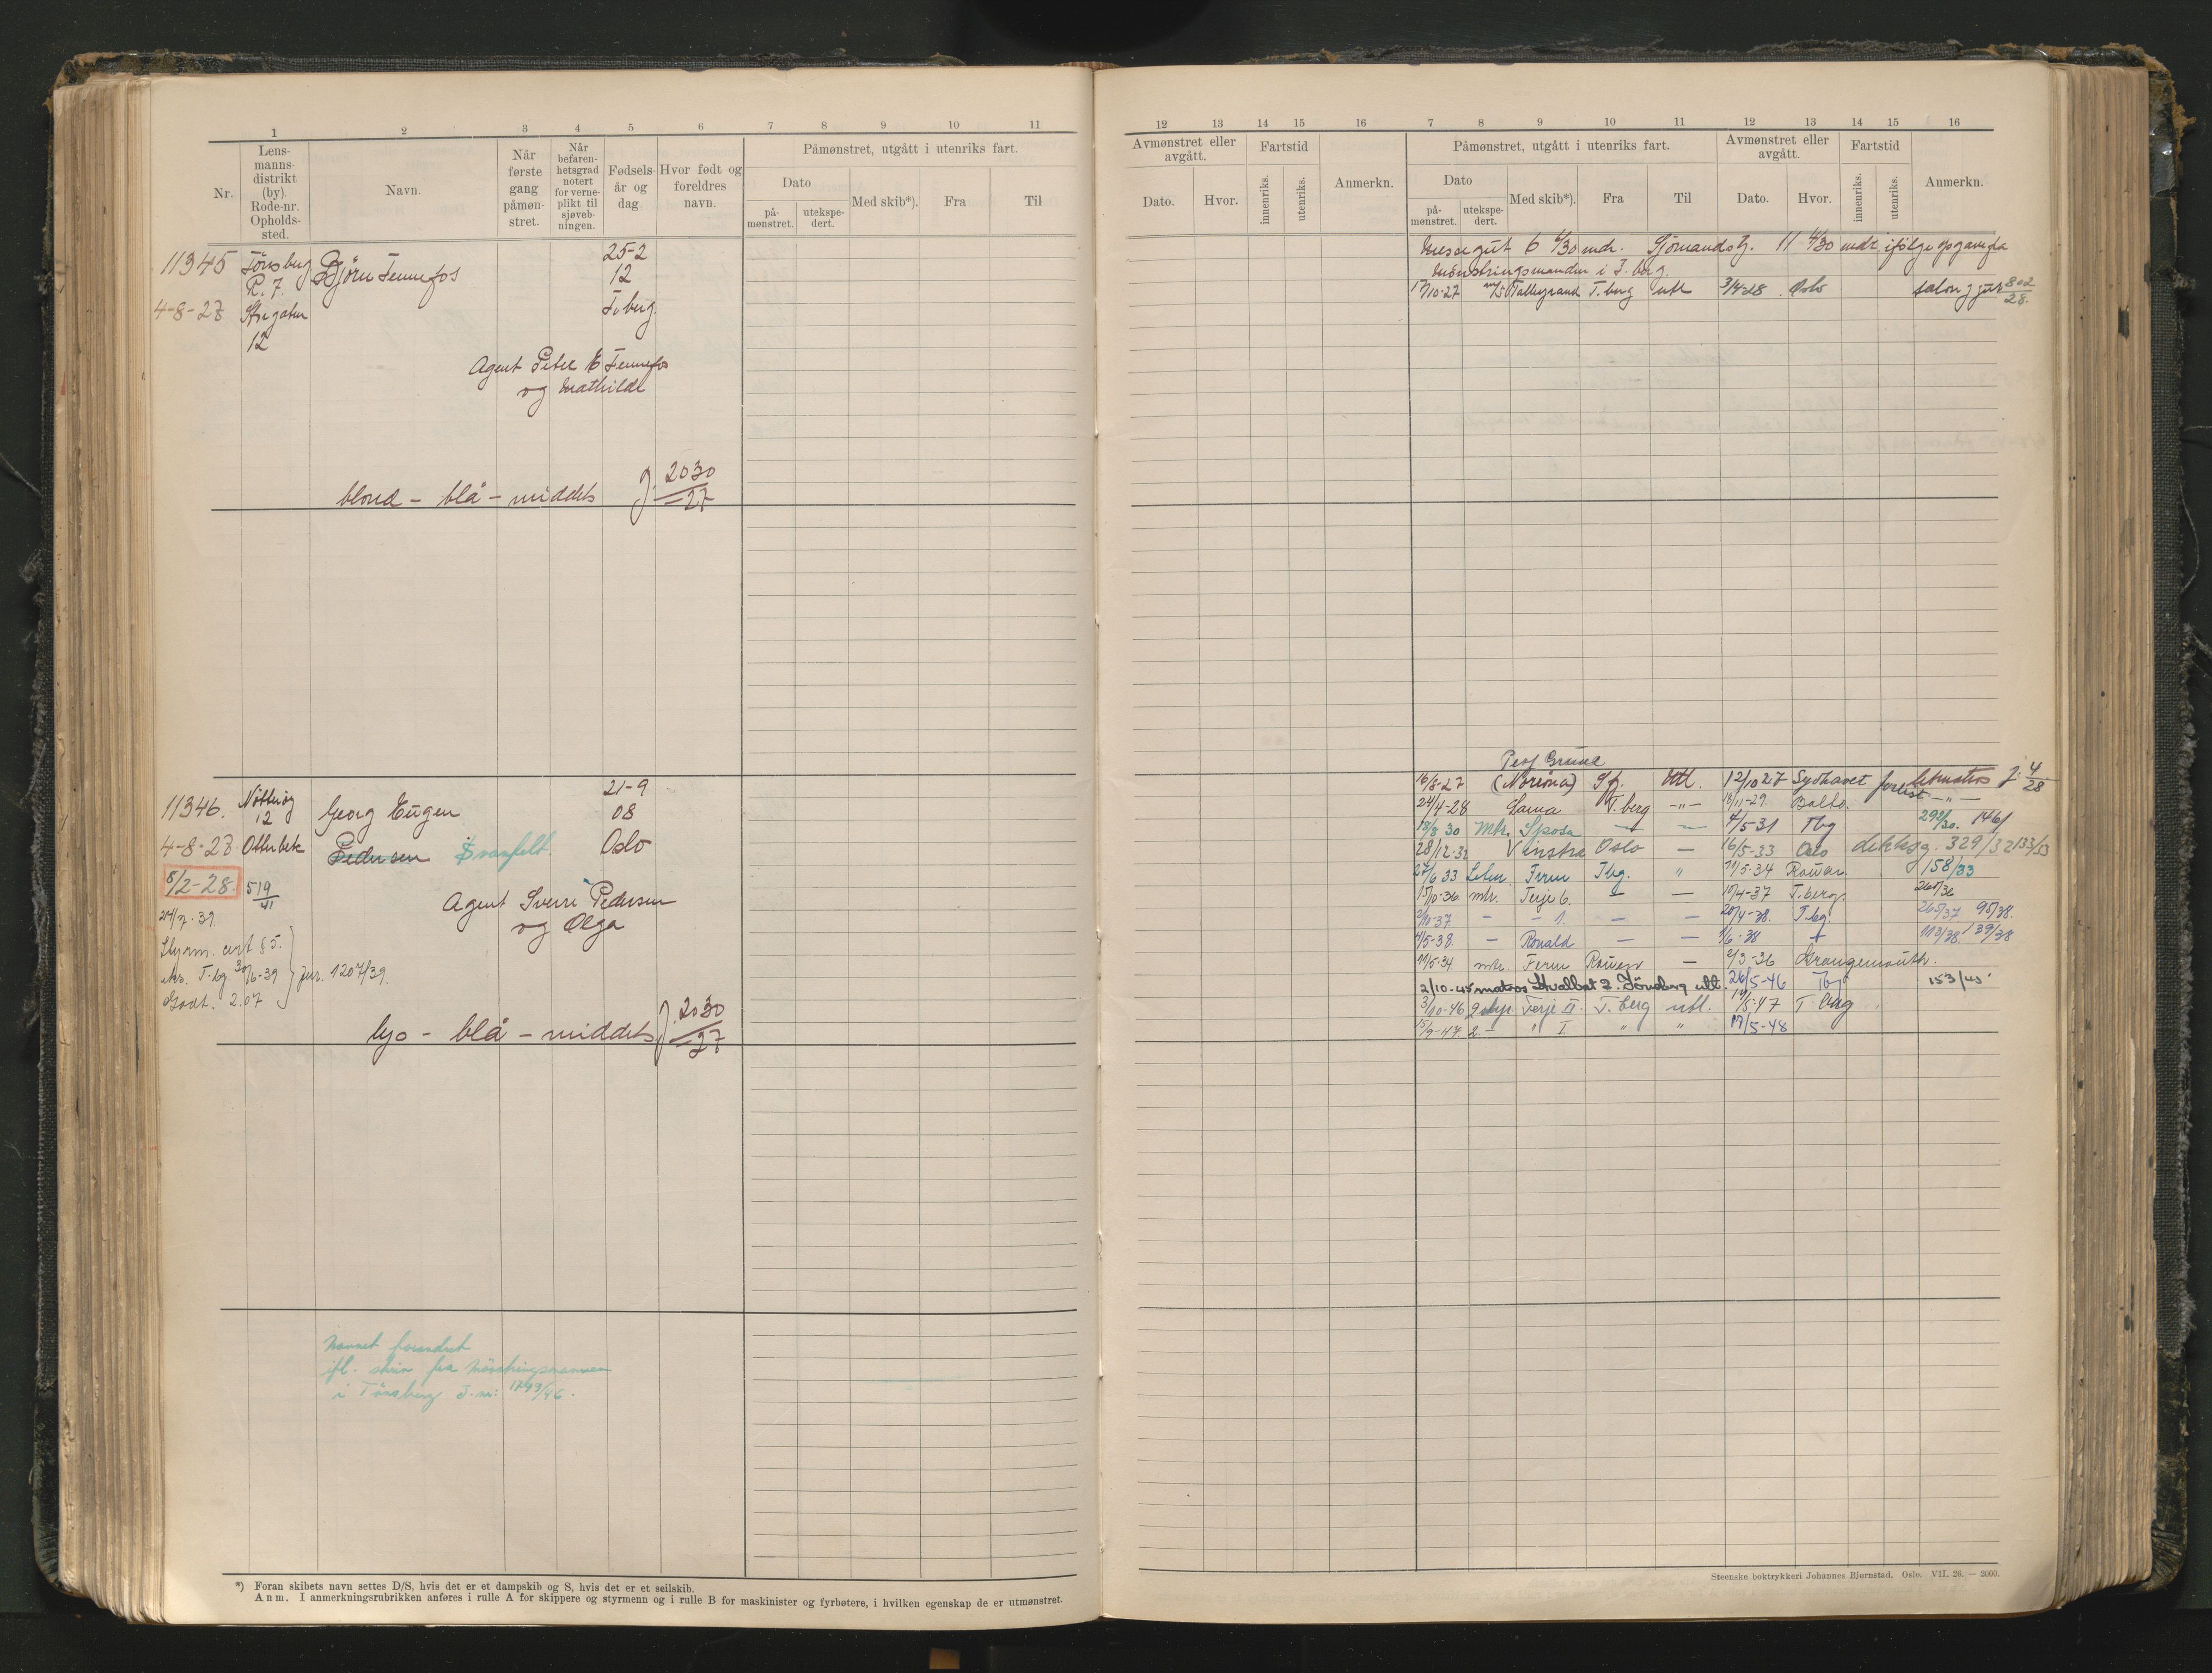 1 2 3 4 5 6 7 8 9 10 11
Nr.
Lens-
manns-
distrikt
(by).
Rode-nr.
Opholds-
sted.
Navn.
Når
første
gang
påmøn-
stret.
Når
befaren-
hetsgrad
notert
for verne-
plikt til
sjøveb-
ningen.
Fødsels-
år og
dag.
Hvor født og
foreldres
navn.
Påmønstret, utgått i utenriks fart.
Dato
på-
mønstret.
utekspe-
dert.
Med skib*).
Fra
Til
11345 Tönsberg Bjørn Tennefos 25-2
R. 7. 12
4-8-27 Storgaten T.berg
12
Agent Peter E Tennefos
og Mathilde
blond - blå - middels J. 2030
27
11346. Nøtterøy Georg Eugen 21-9
12 08
4-8-27 Oterbek Pedersen Svanfelt. Oslo
8/2-28. 519
41
Agent Sverre Pedersen
og Olga
24/7.39.
Styrm. cert § 5.
Nr. T.bg. 30/6-39 jnr. 1207/39.
Godt. 2.07
lys - blå - middels J. 2030
27
Navnet forandret
ifl. skriv fra Mönstringsmannen
i Tönsberg J.nr: 1749/46.
*) Foran skibets navn settes D/S, hvis det er et dampskib og S, hvis det er et seilskib.
Anm. I anmerkningsrubrikken anføres i rulle A for skippere og styrmenn og i rulle B for maskinister og fyrbøtere, i hvilken egenskap de er utmønstret.
12 13 14 15 16 7 8 9 10 11 12 13 14 15 16
Avmønstret eller
avgått.
Dato.
Hvor.
Fartstid
innenriks.
utenriks.
Anmerkn.
Påmønstret, utgått i utenriks fart.
Dato
på-
mønstret.
utekspe-
dert.
Med skib*).
Fra
Til
Avmønstret eller
avgått.
Dato.
Hvor.
Fartstid
innenriks.
utenriks.
Anmerkn.
Messegut 6 6/30 mdr. Sjömandsg. 11 4/30 mdr ifölge opgave fra
Mönstringsmanden i T.berg.
17/10-27 M/S Talleyrand T.berg utl 3/4-28 Oslo salong jnr 802
28.
Prof Gruvel
16/8-27 (Noriona) Sfj. Utl. 12/10 27 Sydhavet forlist letmatros J: 4
28
24/4-28 Lama T.berg -"- 18/11-29. Balto. -"-
18/8 30 Mtr. Sposa — — 4/5-31 Tbg 292/30. 146/
28/12-32 Vinstra Oslo — 16/5-33 Oslo dekksg. 329/32 133/33
27/6 33 Letm Fern Tbg. " 21/5-34 Rouen 158/33
15/10-36 mtr. Terje 6. — — 10/4-37 T.berg. 265/36
2/10-37 — — 1. — — 20/4-38. T.bg. 265/37 95/38.
4/5-38. — Ronald — — 1/6-38 + 113/38. 39/38
11/5-34 mtr. Fern Rouen — 2/3-36 Grangemouth.
2/10-45 matros Svalbat 2. Tönsberg utl. 26/5-46 Tbg 153/45
3/10-46 2 styr. Terje III. T. berg utl. 14/5-47 T. berg
15/9-47 2. — " I. " " 19/5-48
Steenske boktrykkeri Johannes Bjørnstad. Oslo. VII. 26. — 2000.